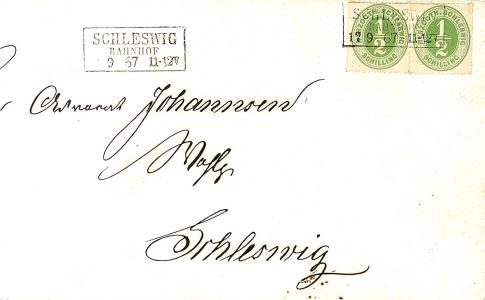 SCHLESWIG
BAHNHOF
9 67 11-12V
HERZOGTH. SCHLESWIG
1/2
SCHILLING
HERZOGTH. SCHLESWIG
1/2
SCHILLING
9 67 11-12V
Advocat Johannsen
Schleswig